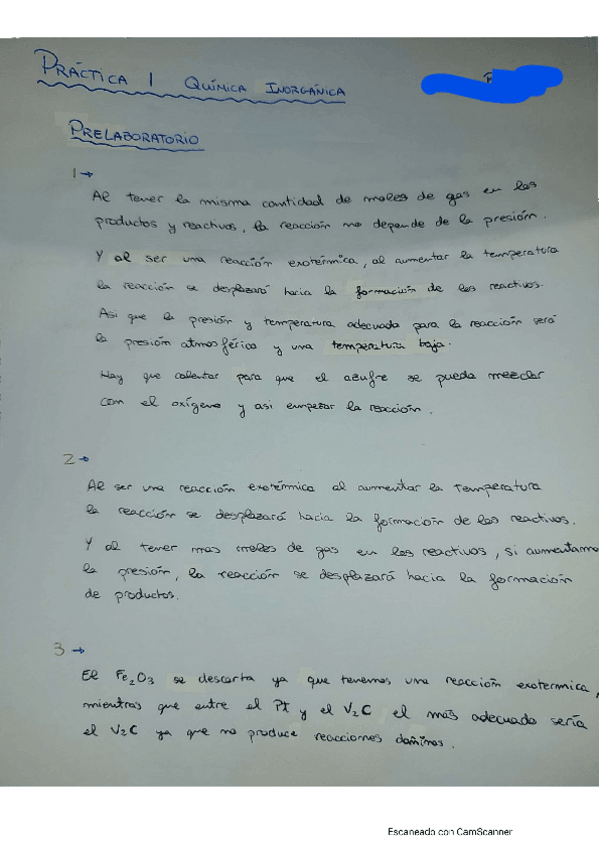 PRÁCTICA 1 QUÍMICA INORGÁNICA
PRELABORATORIO
1→
Al tener la misma cantidad de moles de gas en los
productos y reactivos, la reacción no depende de la presión.
Y al ser una reacción exotérmica, al aumentar la temperatura
la reacción se desplazará hacia la formación de los reactivos.
Asi que la presión y temperatura adecuada para la reacción será
la presión atmosférica y una temperatura baja.
Hay que calentar para que el azufre se pueda mezclar
con el oxígeno y asi empezar la reacción.
2→
Al ser una reacción exotérmica al aumentar la temperatura
la reacción se desplazará hacia la formación de los reactivos.
Y al tener mas moles de gas en los reactivos, si aumentamo
la presión, la reacción se desplazará hacia la formación
de productos.
3→
El Fe₂O₃ se descarta ya que tenemos una reacción exotermica,
mientras que entre el Pt y el V₂C el más adecuado sería
el V₂C ya que no produce reacciones dañinas.
Escaneado con CamScanner